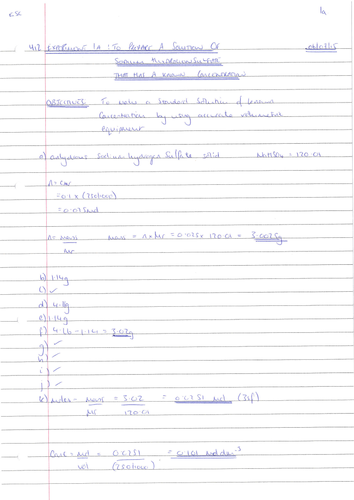 1a
4.12 EXPERIMENT 1A: TO PREPARE A SOLUTION OF
SODIUM HYDROGENSULFATE
THAT HAS A KNOWN CONCENTRATION
OBJECTIVES: To make a standard solution of known
concentration by using accurate volumetric
equipment
a) anhydrous sodium hydrogen sulfate solid NaHSO4 = 120.01
n = cv
= 0.1 x (250/1000)
= 0.025mol
n = mass mass = n x Mr = 0.025 x 120.01 = 3.0025g
Mr
b) 1.14g
c) ✓
d)
e) 1.14g
f) 4.16 - 1.14 = 3.02g
g) ✓
h) ✓
i) ✓
j) ✓
k) moles = mass = 3.02 = 0.0251 mol (3sf)
Mr 120.01
Conc = mol = 0.0251 = 0.101 moldm-3
vol (250/1000)